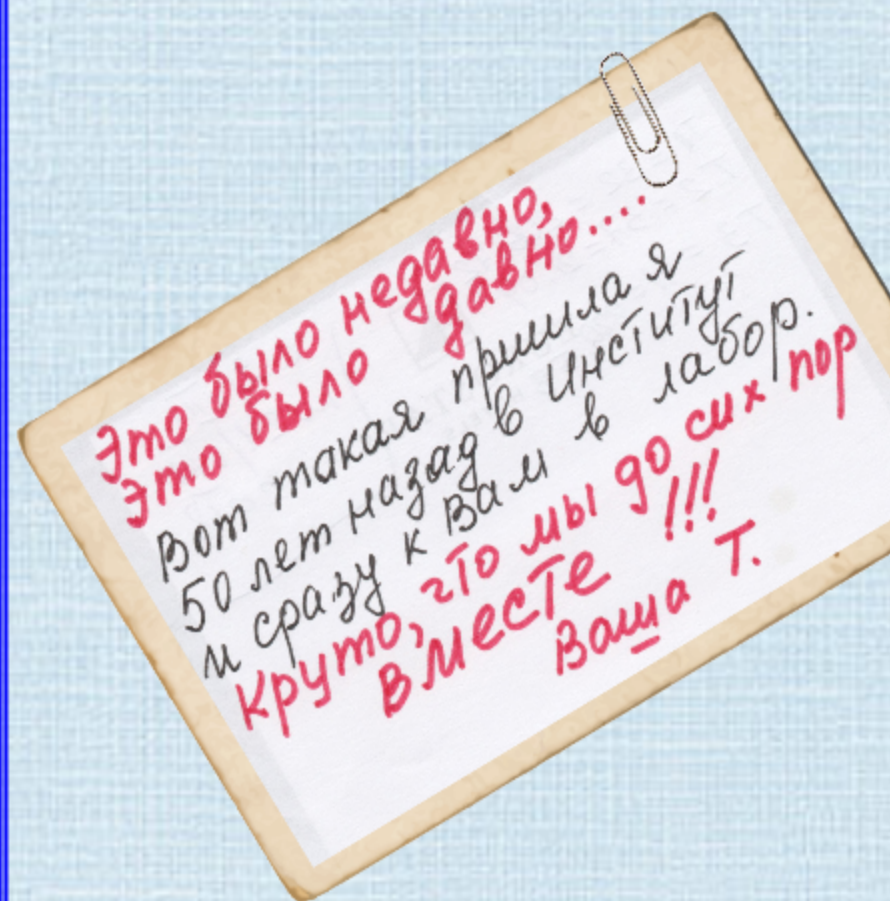 Это было недавно,
Это было давно....
Вот такая пришла я
50 лет назад в Институт
и сразу к Вам в лабор.
Круто, что мы до сих пор
вместе !!!
Ваша Т.